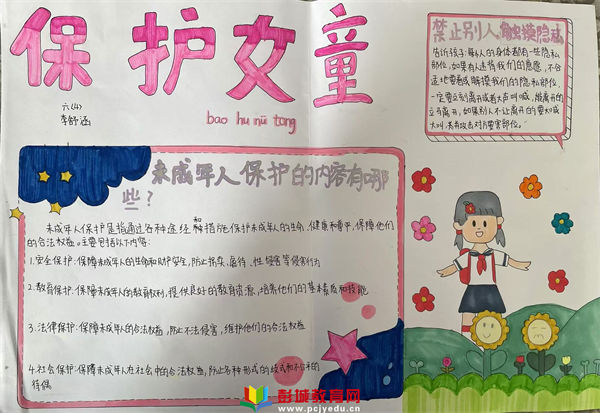 保护女童
六(4)
李舒涵
bao hu nü tong
禁止别人触摸隐私
告诉孩子:每人的身体都有一些隐私
部位,如果有人违背我们的意愿,不合
适地要看或触摸我们的隐私部位,
一定要立刻离开或者大声叫喊,能离开的
立马离开,如果别人不让离开的要知喊
大叫
未成年人保护的内容有哪
些?
未成年人保护是指通过各种途经和种措施保护未成年人的生命、健康和尊严,保障他们
的合法权益。主要包括以下内容:
1.安全保护:保障未成年人的生命和财产安全,防止拐卖、虐待、性侵害等侵害行为
2.教育保护:保障未成年人的教育权利,提供良好的教育资源,培养他们的基本素质和技能
3.法律保护:保障未成年人的合法权益,防止不法侵害,维护他们的合法权益
4.社会保护:保障未成年人在社会中的合法权益,防止各种形式的歧视和不公平的
待遇
彭城教育网
www.pcjyedu.cn